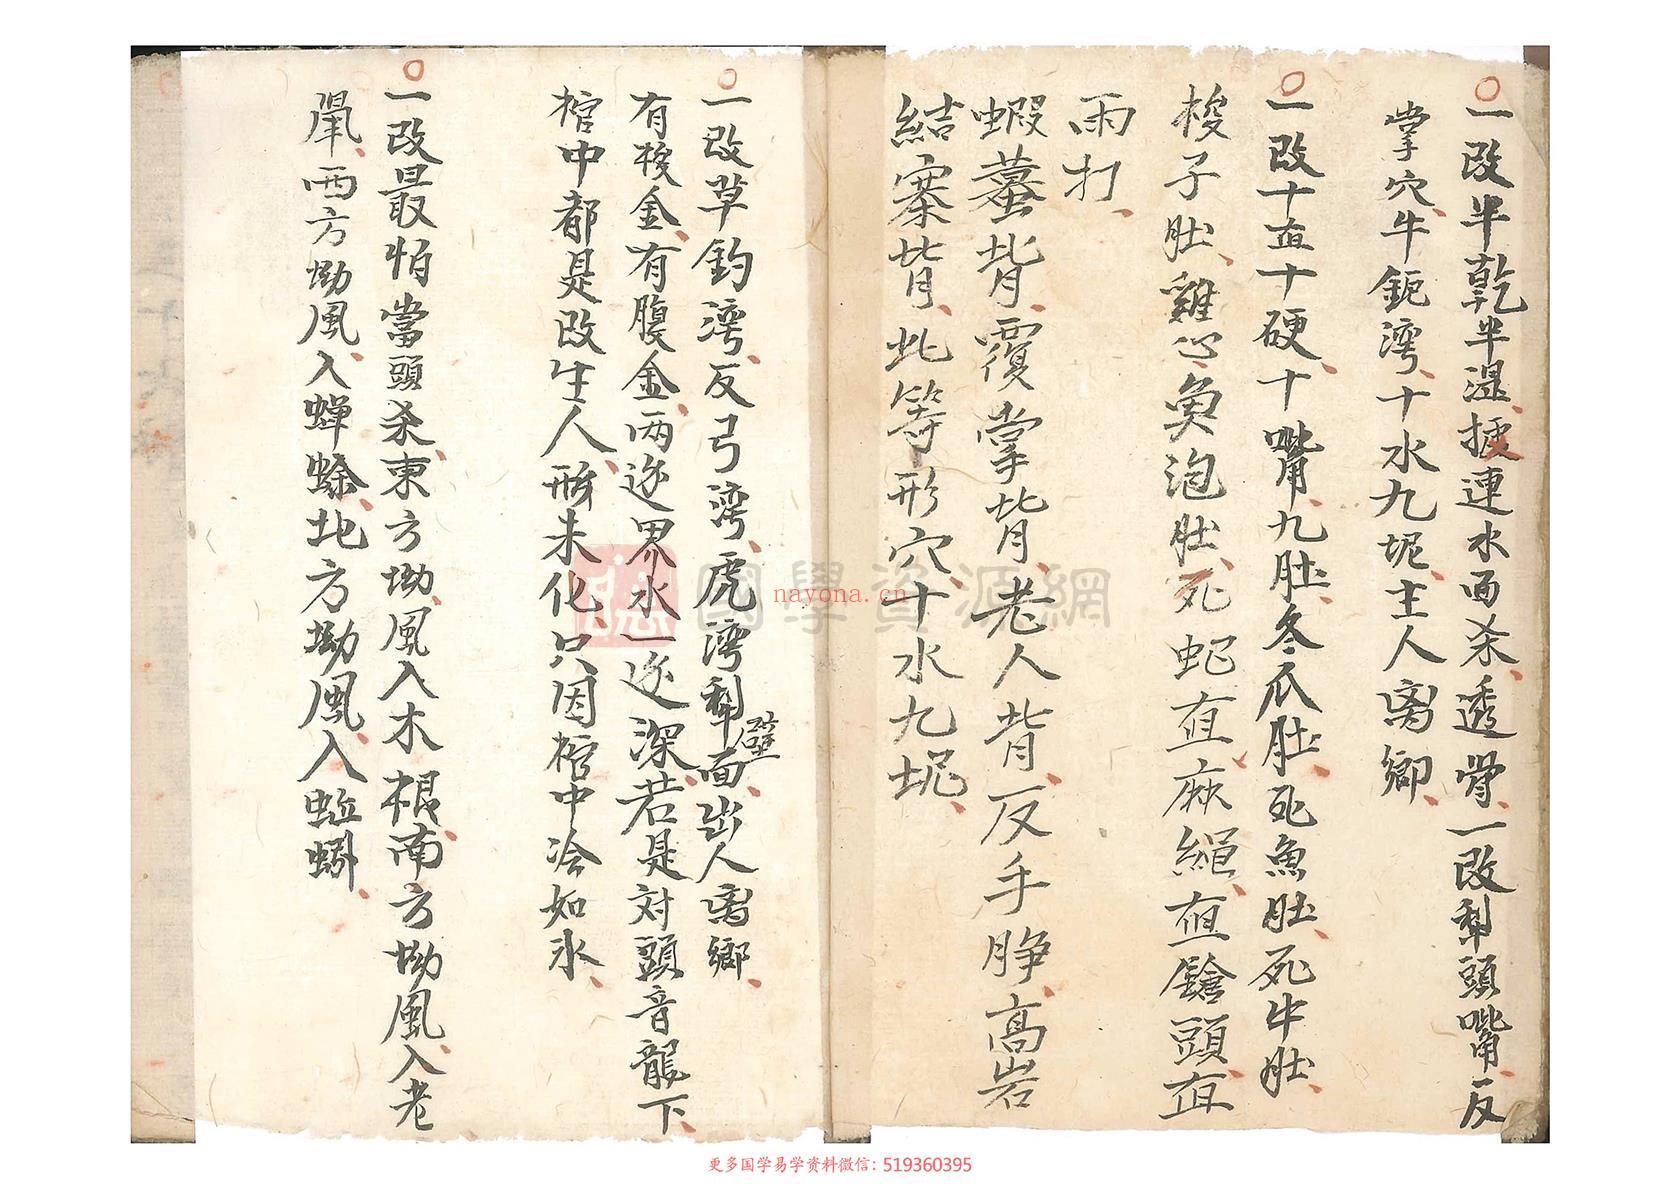 一改半乾半湿連水面杀透骨一改犁頭嘴反
掌穴牛鈪湾十水九坭主人离鄉
一改十直十硬十嘴九肚冬瓜肚死魚肚死牛肚
梭子肚雞心魚泡肚死蛇直麻繩直鎗頭直
雨打
蝦蟇背覆掌背老人背反手睁高岩
結寨背此等形穴十水九坭
一改草鈎湾反弓湾虎湾犁壁面出人离鄉
有梭金有腹金两边界水一边深若是対頭音龍下
棺中都是改生人形未化只因棺中冷如氷
一改最怕當頭杀東方坳風入木根南方坳風入老
鼠西方坳風入蟬蜍北方坳風入蚯蚓
國學資源網
nayona.cn
更多国学易学资料微信：519360395